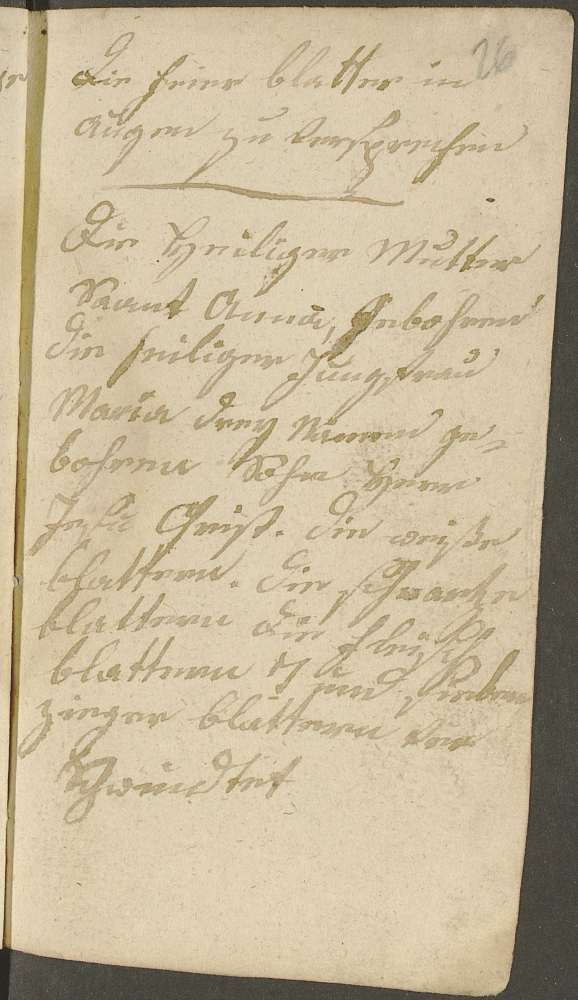 26
Die feier blatter in
augen zu versprechen
Die Heiliger Mutter
Sannt Anna, Gebohren
die heiliger Jungfrau
Maria drey namen ge=
bohren Sohn Herr
Jesu Christ. die weiße
blattern. die schwartze
blattern die fleisch
blattern 77 und sieben
zieger blattern ver
Schwindtet